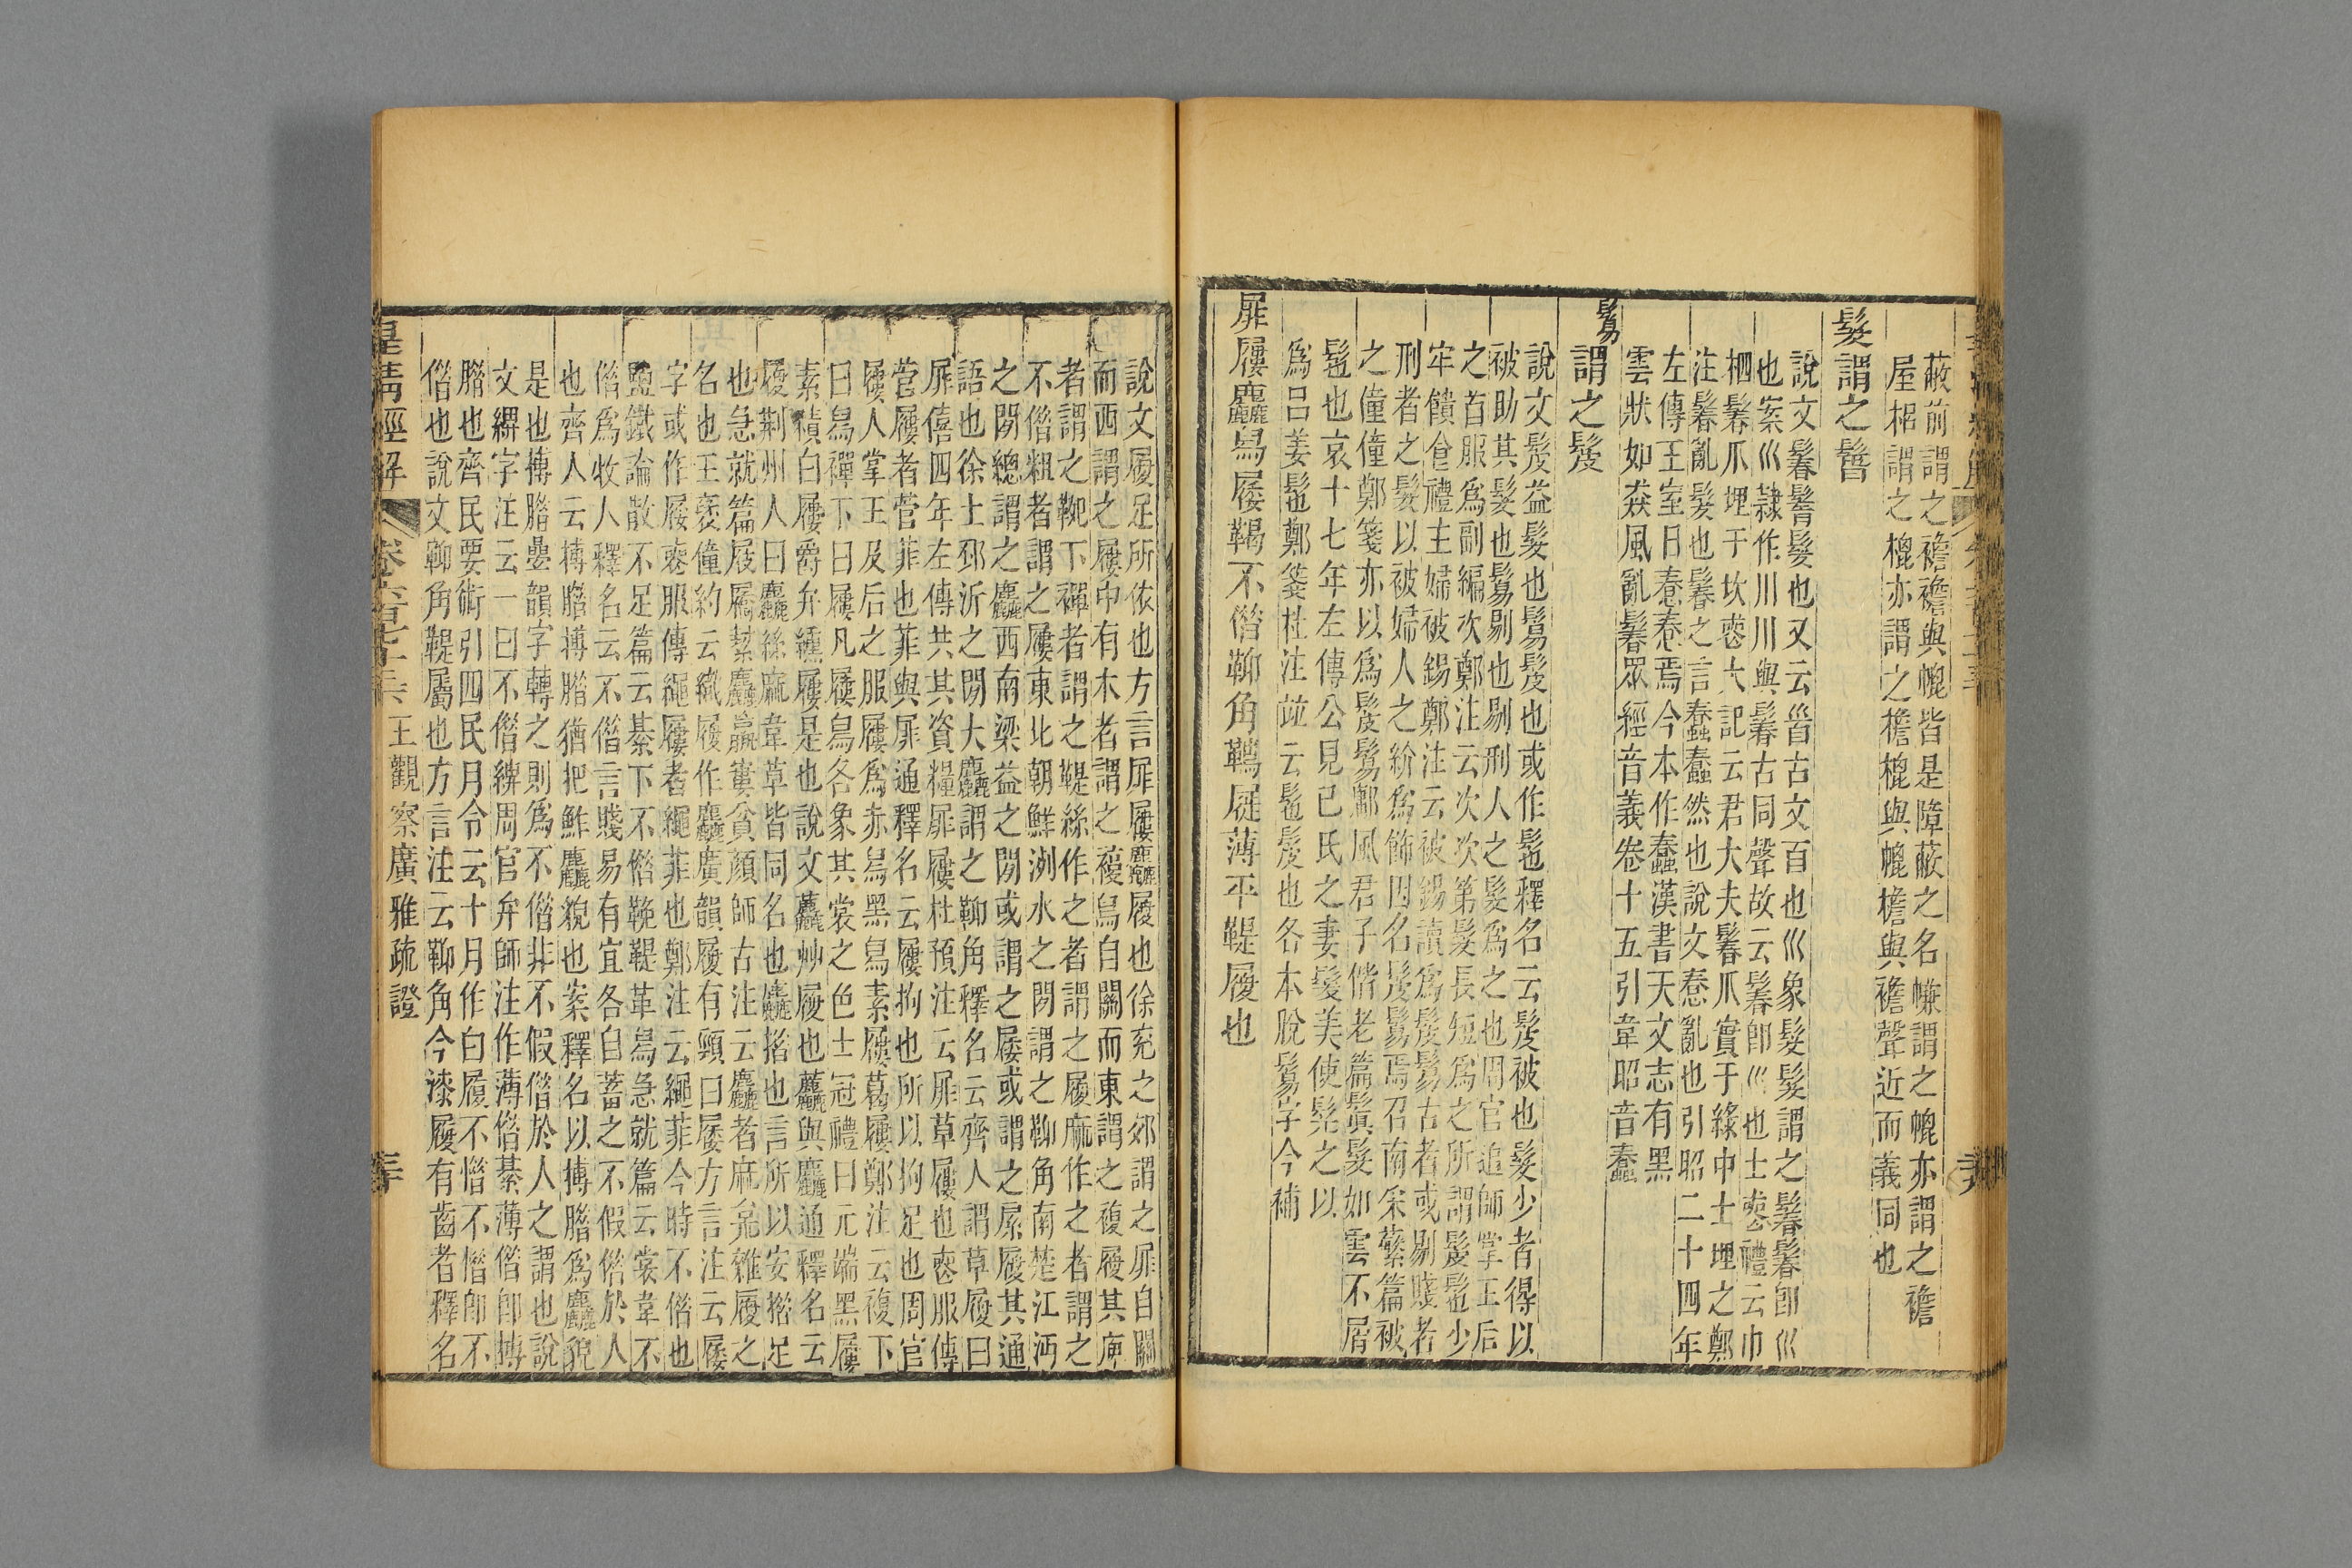 蔽前謂之襜襜與幌皆是障蔽之名幨謂之幌亦謂之襜
屋梠謂之橙亦謂之檐橙與幌檐與襜聲近而義同也
髮謂之鬊
說文鬊鬌髮也又云𦣻古文百也巛象髮髮謂之鬊鬊卽巛
也案巛隸作川川與鬊古同聲故云鬊卽巛也士喪禮云巾
柶鬊爪埋于坎喪大記云君大夫鬊爪實于綠中士埋之鄭
注鬊亂髮也鬊之言蠢蠢然也說文惷亂也引昭二十四年
左傳王室日惷惷焉今本作蠢漢書天文志有黑
雲狀如猋風亂鬊眾經音義卷十五引韋昭音蠢
鬄謂之髲
說文髲益髮也鬄髲也或作髢釋名云髲被也髮少者得以
被助其髮也鬄剔也剔刑人之髮爲之也周官追師掌王后
之首服爲副編次鄭注云次次第髮長短爲之所謂髲髢少
牢饋食禮主婦被錫鄭注云被錫讀爲髲鬄古者或剔賤者
刑者之髮以被婦人之紒爲飾因名髲鬄焉召南采蘩篇被
之僮僮鄭箋亦以爲髲鬄鄘風君子偕老篇鬒髮如雲不屑
髢也哀十七年左傳公見己氏之妻髮美使髡之以
爲呂姜髢鄭箋杜注竝云髢髲也各本脫鬄字今補
屝屨麤舄屐鞨不借䩕角鞾屣薄平鞮履也
說文履足所依也方言屝屨麤履也徐兗之郊謂之屝自關
而西謂之屨中有木者謂之複舄自關而東謂之複履其庳
者謂之䩕下襌者謂之鞮絲作之者謂之履麻作之者謂之
不借粗者謂之屨東北朝鮮洌水之閒謂之䩕角南楚江沔
之閒總謂之麤西南梁益之閒或謂之屐或謂之屩履其通
語也徐土邳沂之閒大麤謂之䩕角釋名云齊人謂草履曰
屝僖四年左傳共其資糧屝屨杜預注云屝草屨也喪服傳
菅屨者菅菲也菲與屝通釋名云屨拘也所以拘足也周官
屨人掌王及后之服屨爲赤舄黑舄素屨葛屨鄭注云複下
曰舄襌下曰屨凡屨舄各象其裳之色士冠禮曰元端黑屨
素積白屨爵弁纁屨是也說文麤艸履也麤與麤通釋名云
屨荆州人曰麤絲麻韋草皆同名也麤措也言所以安措足
也急就篇屐屩䋈麤羸窶貧顏師古注云麤者麻枲雜履之
名也王襃僮約云織履作麤廣韻履有頸曰屐方言注云屐
字或作屐喪服傳繩屨者繩菲也鄭注云繩菲今時不借也
鹽鐵論散不足篇云綦下不借䩕鞮革舄急就篇云裳韋不
借爲牧人釋名云不借言賤易有宜各自蓄之不假借於人
也齊人云搏腊搏腊猶把鮓麤貌也案釋名以搏腊爲麤貌
是也搏腊曡韻字轉之則爲不借非不假借於人之謂也說
文䋽字注云一曰不借䋽周官弁師注作薄借綦薄借卽搏
腊也齊民要術引四民月令云十月作白履不惜不惜卽不
借也說文䩕角鞮屬也方言注云䩕角今漆履有齒者釋名
皇淸經解 卷六百七十三 王觀察廣雅疏證